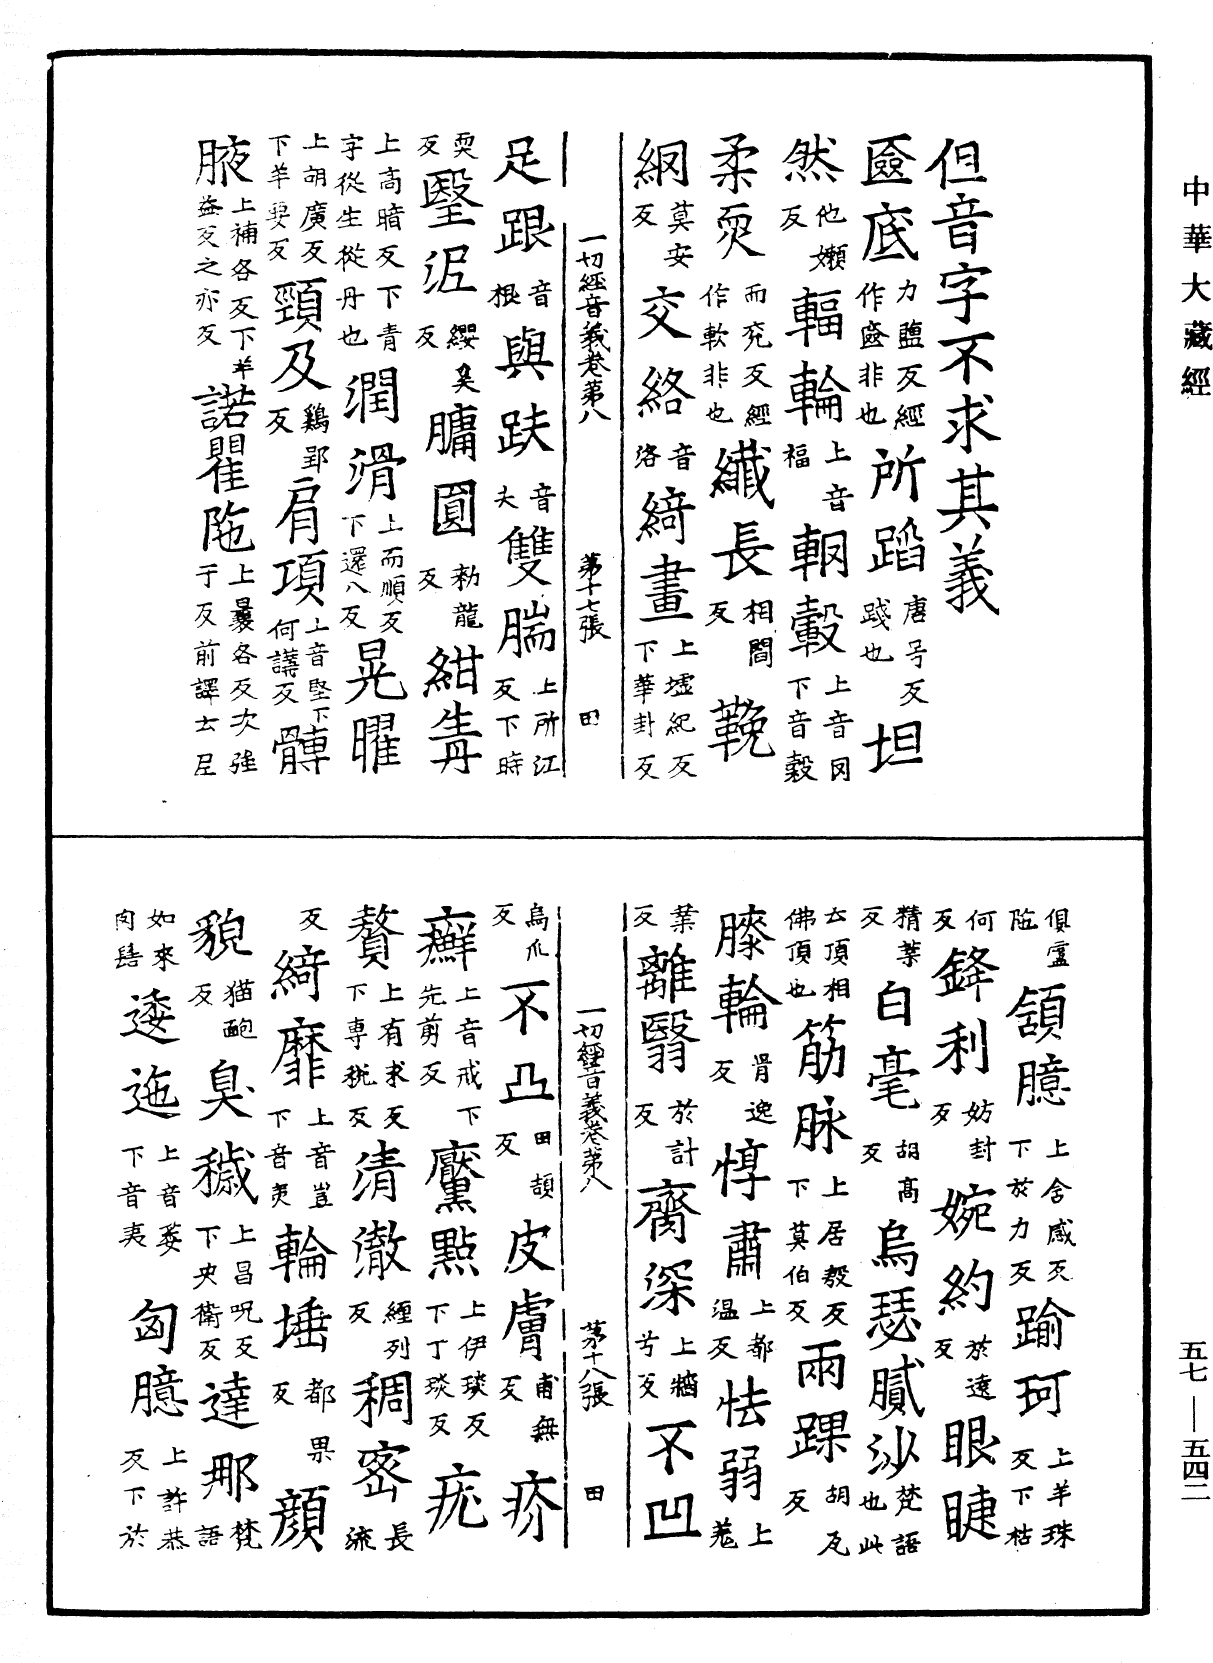 中華大藏經
但音字不求其義
奩底 力鹽反經作奩非也 所蹈 唐号反踐也 坦
然 他嬾反 輻輪 上音福 輞轂 上音网下音穀
柔耎 而兖反經作軟非也 纖長 相閻反 鞔
網 莫安反 交絡 音洛 綺畫 上墟紀反下華封反
一切經音義卷第八 第十七張 田
足跟 音根 與趺 音夫 雙腨 上所江反下時
耎反 堅泥 纓奚反 𦟛圓 勑龍反 紺青
上高暗反下青字從生從丹也 潤滑 上而順反下還八反 晃曜
上胡廣反下羊要反 頸及 鷄郢反 肩項 上音堅下何講反 髆
腋 上補各反下羊益反之亦反 諾瞿陁 上曩各反次強于反前譯云尼
俱盧陁 頷臆 上含感反下於力反 踰珂 上羊珠反下枯
何反 鋒利 妨封反 婉約 於遠反 眼睫
精葉反 白毫 胡高反 烏瑟膩沙 梵語也此
云頂相佛頂也 筋脉 上居殷反下莫伯反 兩踝 胡瓦反
膝輪 胥逸反 惇肅 上都温反 怯弱 上羗
業反 離翳 於計反 齊深 上兮反 不凹
一切經音義卷第八 第十八張 田
烏爪反 不凸 田頡反 皮膚 甫無反 疥
癬 上音戒下先剪反 黶點 上伊琰反下丁琰反 疣
贅 上有求反下專稅反 清澈 纏列反 稠密 長流
反 綺靡 上音豈下音美 輪埵 都果反 顏
貌 猫皰反 臭穢 上昌呪反下央衛反 達那 梵語
如來肉髻 逶迤 上音萎下音夷 匈臆 上許恭反下於
五七—五四二